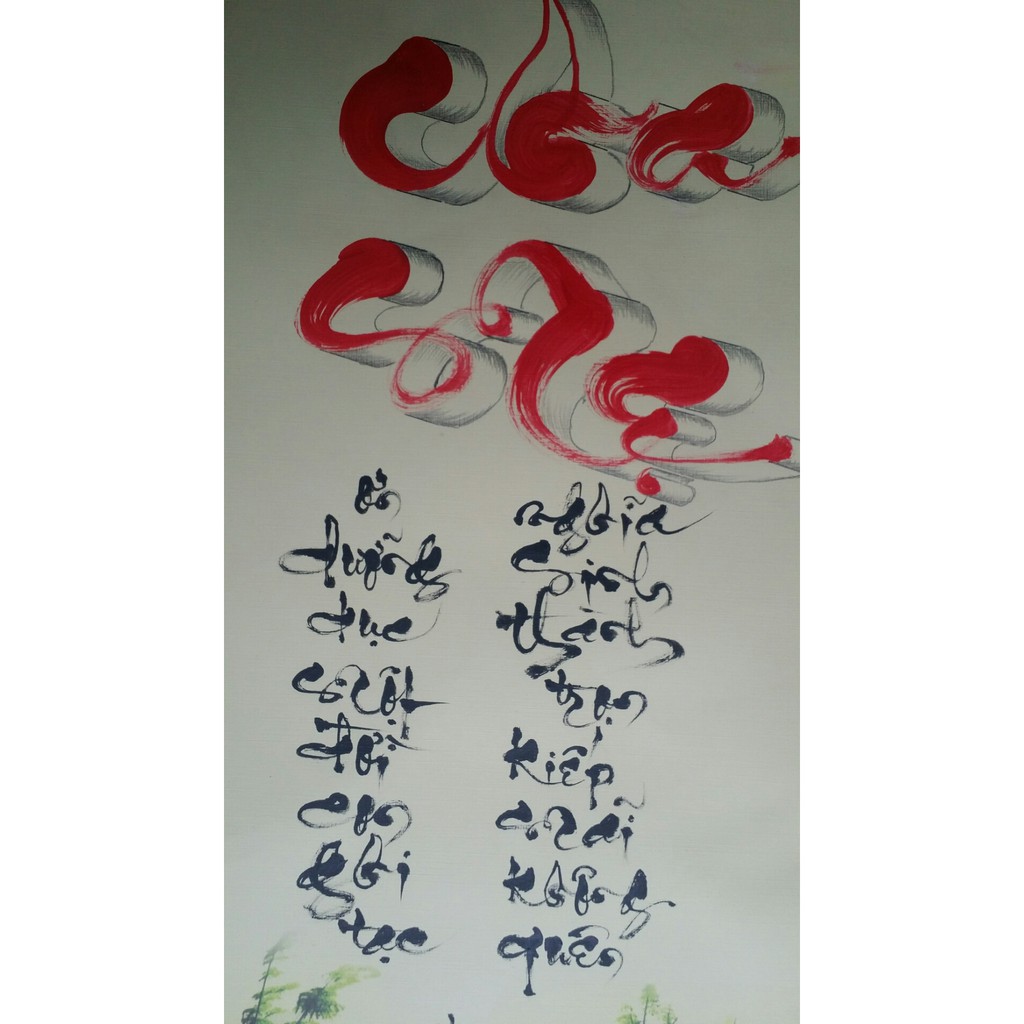 Cha
Mẹ
ơn dưỡng dục một đời con ghi tạc
nghĩa sinh thành trọn kiếp mãi không quên